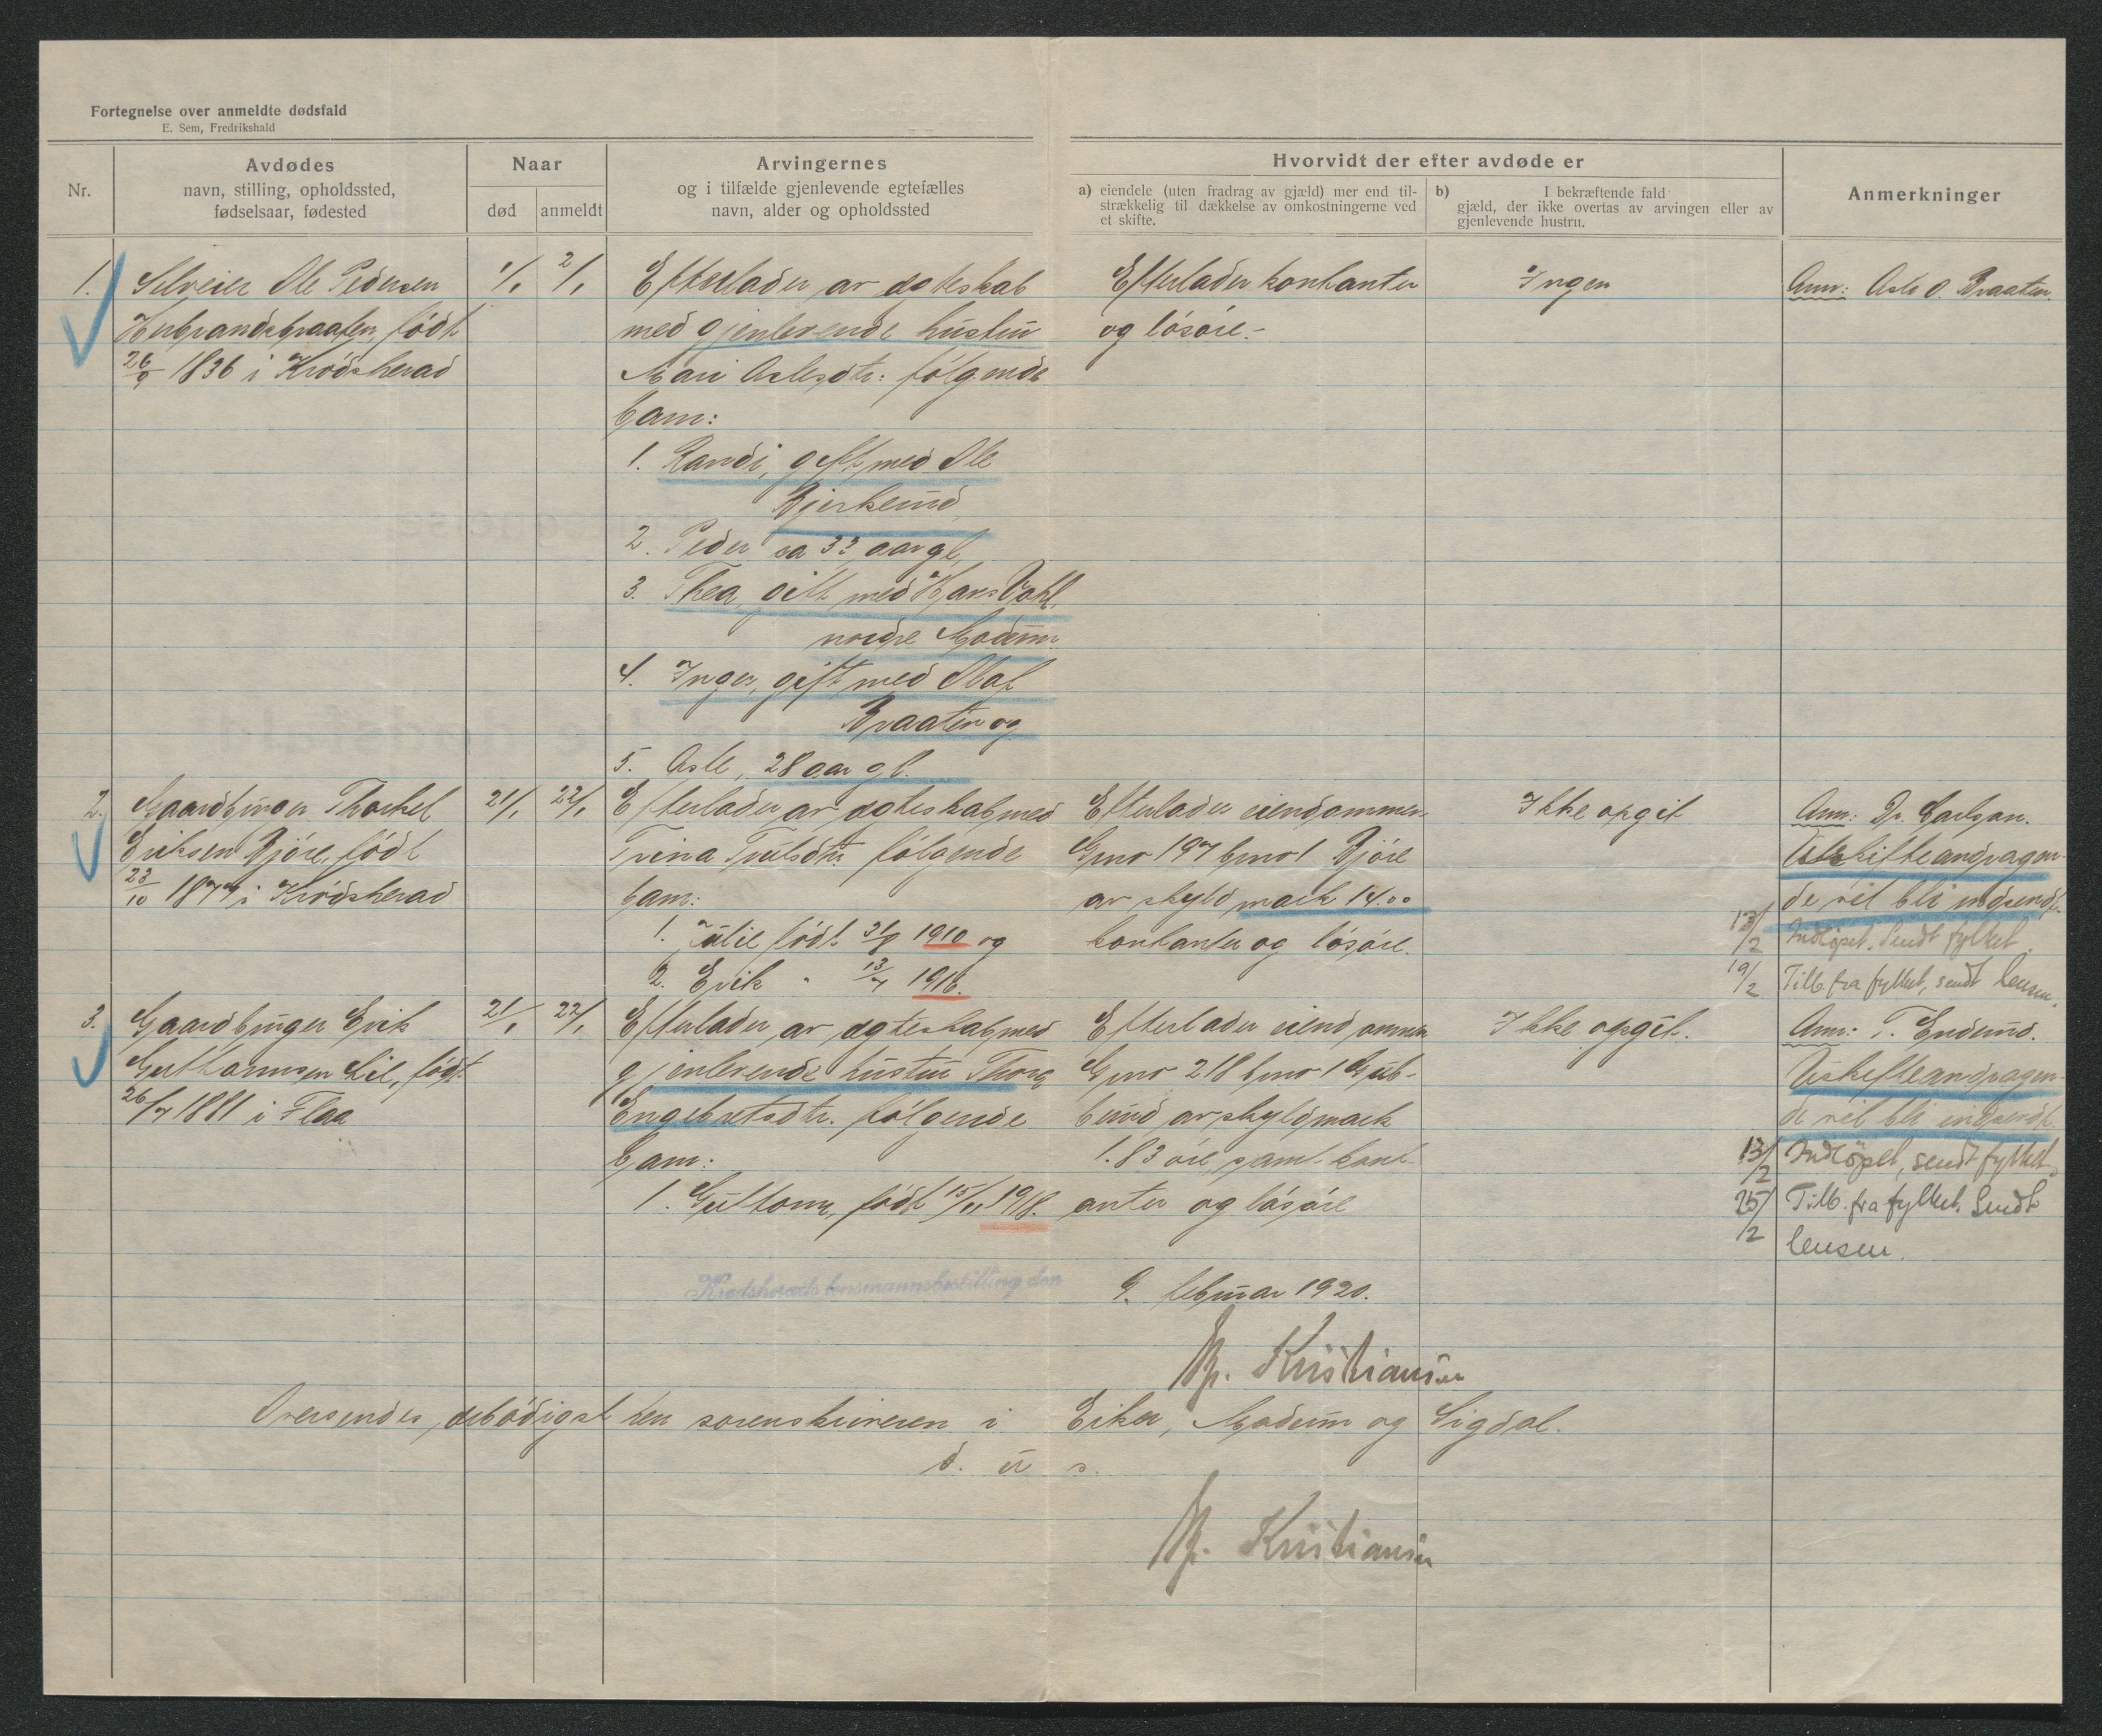 Fortegnelse over anmeldte dødsfald
E. Sem, Fredrikshald
Nr.
Avdødes
navn, stilling, opholdssted,
fødselsaar, fødested
Naar
død
anmeldt
Arvingernes
og i tilfælde gjenlevende egtefælles
navn, alder og opholdssted
Hvorvidt der efter avdøde er
a) eiendele (uten fradrag av gjæld) mer end til-
strækkelig til dækkelse av omkostningerne ved
et skifte.
b) I bekræftende fald
gjæld, der ikke overtas av arvingen eller av
gjenlevende hustru.
Anmerkninger
1.
Selveier Ole Pedersen
Herbrandsbraaten, født
26/9 1836 i Krødsherad
1/1
2/1
Efterlader av egteskab
med gjenlevende hustru
Mari Aslesdtr. følgende
barn:
1. Randi, gift med Ole
Bjerkerud
2. Peder ca 33 aar gl.
3. Thea gift med Hans
nordre Modum.
4. Inger, gift med Olaf
Braaten og
5. Asle, 28 aar gl.
Efterlader kontanter
og løsøre.-
Ingen
Anm: Asle O. Braaten.
2.
Gaardbruger Thorkel
Eriksen Bjøre, født
23/10 1877 i Krødsherad
21/1
22/1
Efterlader av egteskab med
Trina Trulsdtr. følgende
barn:
1. Julie født 31/8 1910 og
2. Erik " 13/7 1916.
Efterlader eiendommen
Gno 197 bno 1 Bjøre
av skyld mark 14.00
kontanter og løsøre.
Ikke opgit
Anm: Dr. Carlson.
Uskifteandragen-
de vil bli indsendt.
13/2 Indløpet. Sendt fylket.
19/2 Tilb. fra fylket, sendt lensm.
3.
Gaardbruger Erik
Guttormsen Lie, født
26/7 1881 i Flaa
21/1
22/1
Efterlader av egteskab med
gjenlevende hustru Thora
Engebretsdtr. følgende
barn:
1. Guttorm, født 15/11 1918.
Efterlader eiendommen
Gno 218 bno 1 Gub-
berud av skyldmark
1.83 øre samt kont-
anter og løsøre
Ikke opgit.
Anm: T. Enderud.
Uskifteandragen-
de vil bli indsendt.
13/2 Indløpet, sendt fylket.
25/2 Tilb. fra fylket. Sendt
lensm.
Krødsherads lensmannsbestilling den
9. februar 1920.
Kristiansen
Oversendes ærbødigst hen sorenskriveren i Eiker, Modum og Sigdal.
d. u s.
Kristiansen